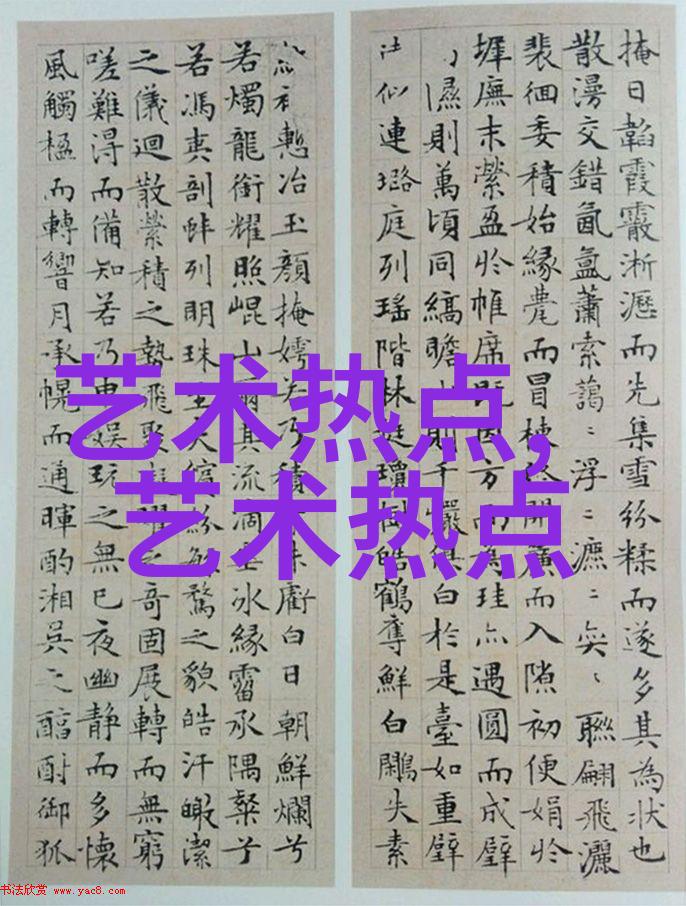 掩日韜霞霰淅瀝而先集雪紛糅而遂多其為状也
散漫交錯氤氳蕭索藹〻浮〻瀌〻奕〻聯翩飛灑
裴徊委積始緣甍而冒棟開簾而入隙初便娟於
墀廡末縈盈於帷席既因方而為珪亦遇圓而成璧
隰則萬頃同縞瞻則千巖俱白於是臺如重璧
似連璐庭列瑤階林挺瓊樹皓鶴奪鮮白鷴失素
慙冶玉顏掩嫮若乃積虧白日朝鮮爛兮
若燭龍銜耀照崐山爾其流滴垂冰緣霤承隅粲兮
若馮夷剖蚌列明珠至夫繽紛繁騖之貌皓汗皦潔
之儀迴散縈積之勢飛聚凝曜之奇固展轉而無窮
嗟難得而備知若乃申娱玩之無已夜幽静而多懷
風觸楹而轉響月承幌而通暉酌湘吳之醇酎御狐
艺术热点,
艺术热点
书法欣赏 www.yac8.com